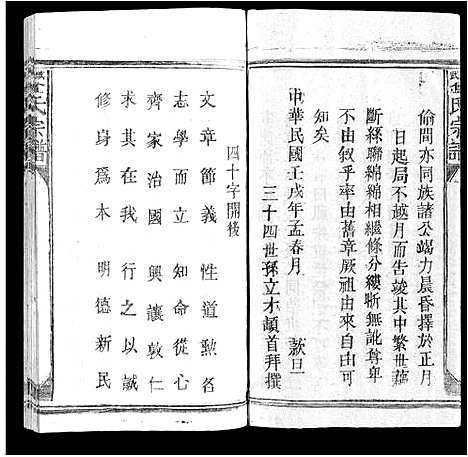 偷間亦同族諸公竭力晨昏擇於正月
日起局不越月而告竣其中繁世藉
斷經聯綿綿相繼條分縷晰無訛尊卑
不由叙乎率由舊章厥祖由來自可
知矣
中華民國壬戌年孟春月 穀旦
三十四世孫立木頓首拜撰
四十字開後
文章節義 性道勲名
志學而立 知命從心
齊家治國 興讓敦仁
求其在我 行之以誠
修身爲本 明德新民
氏宗譜
氏宗譜